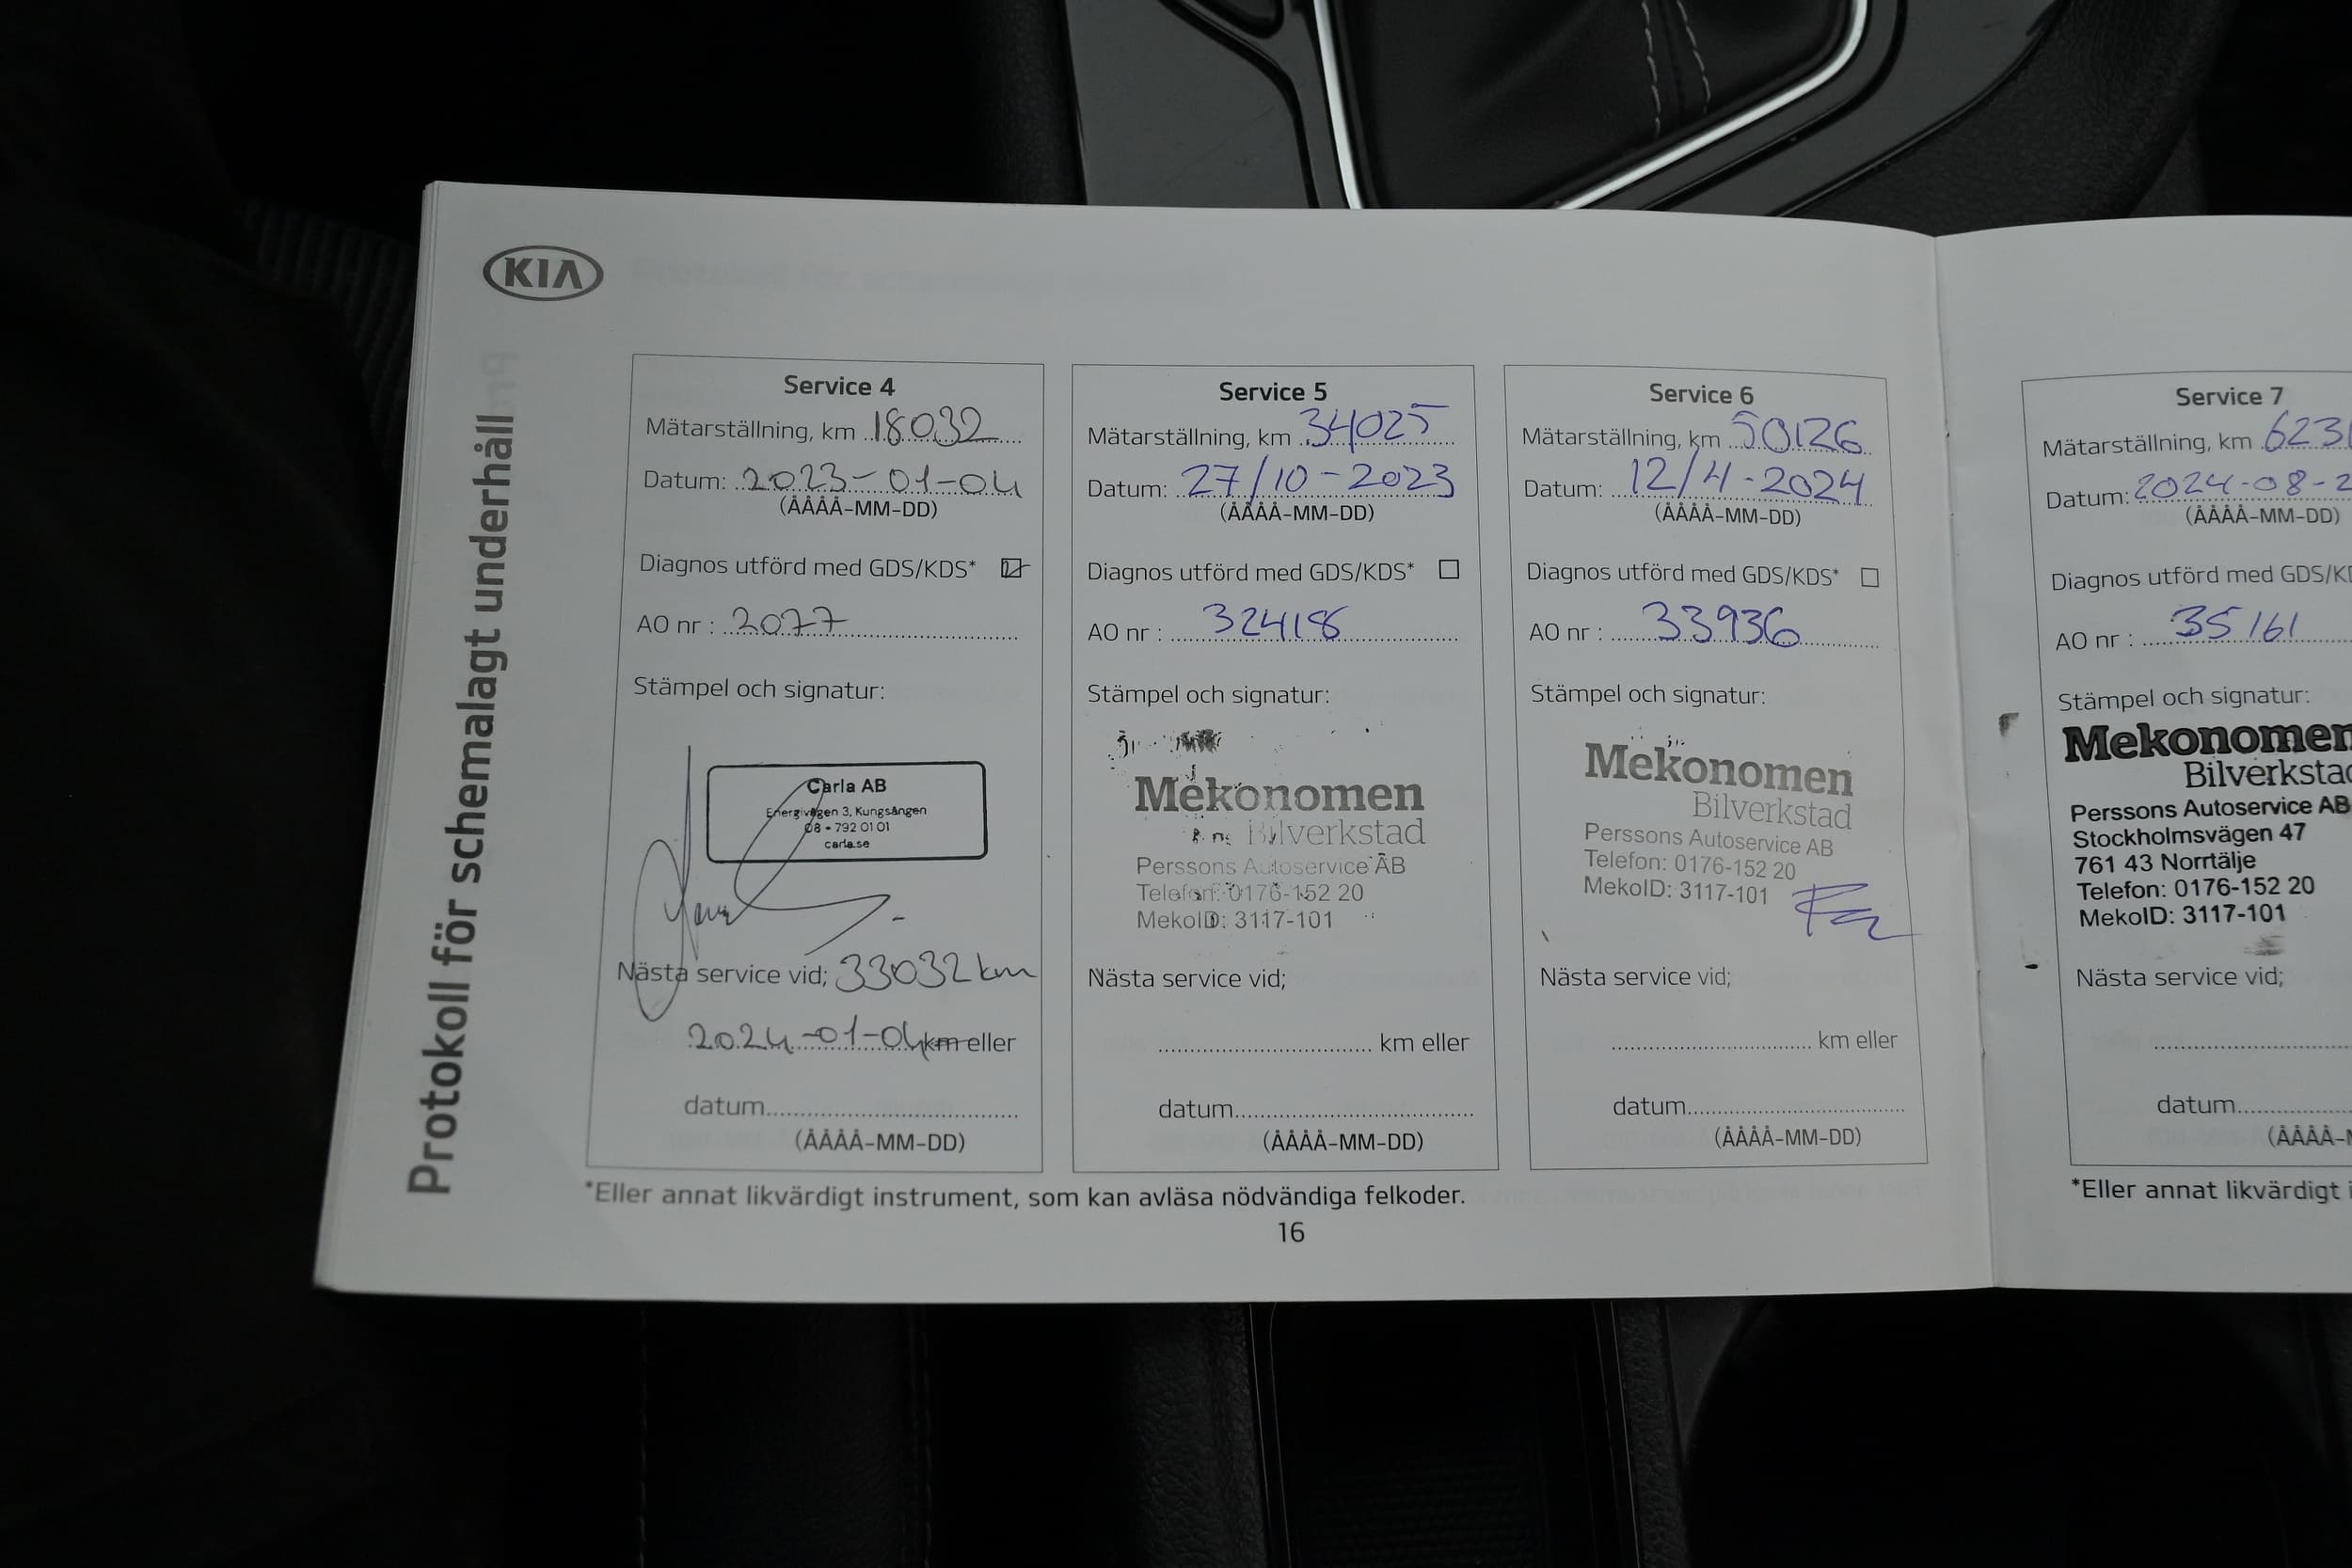 KIA
Protokoll för schemalagt underhåll
Service 4
Mätarställning, km 18032
Datum: 2023-01-04
(ÅÅÅÅ-MM-DD)
Diagnos utförd med GDS/KDS*
AO nr : 2077
Stämpel och signatur:
Carla AB
Energivägen 3, Kungsängen
08 - 792 01 01
carla.se
Nästa service vid; 33032 km
2024-01-04 km eller
datum
(ÅÅÅÅ-MM-DD)
Service 5
Mätarställning, km 34025
Datum: 27/10-2023
(ÅÅÅÅ-MM-DD)
Diagnos utförd med GDS/KDS*
AO nr : 324186
Stämpel och signatur:
Mekonomen
Bilverkstad
Perssons Autoservice AB
Telefon: 0176-152 20
MekoID: 3117-101
Nästa service vid;
km eller
datum
(ÅÅÅÅ-MM-DD)
Service 6
Mätarställning, km 50126
Datum: 12/4-2024
(ÅÅÅÅ-MM-DD)
Diagnos utförd med GDS/KDS*
AO nr : 33936
Stämpel och signatur:
Mekonomen
Bilverkstad
Perssons Autoservice AB
Telefon: 0176-152 20
MekoID: 3117-101
Nästa service vid;
km eller
datum
(ÅÅÅÅ-MM-DD)
*Eller annat likvärdigt instrument, som kan avläsa nödvändiga felkoder.
16
Service 7
Mätarställning, km 623
Datum: 2024-08-2
(ÅÅÅÅ-MM-DD)
Diagnos utförd med GDS/K
AO nr : 35161
Stämpel och signatur:
Mekonomen
Bilverksta
Perssons Autoservice AB
Stockholmsvägen 47
761 43 Norrtälje
Telefon: 0176-152 20
MekoID: 3117-101
Nästa service vid;
datum
(ÅÅÅÅ-M
*Eller annat likvärdigt i